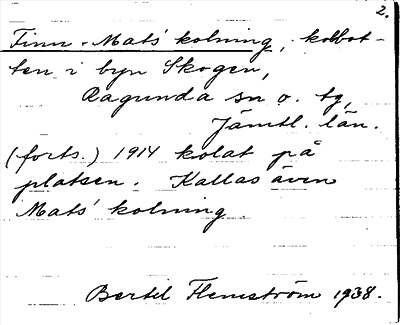 2.
Finn-Mats' kolning, kolbot-
ten i byn Skogen,
Ragunda sn o. tg,
Jämtl. län.
(forts.) 1914 kolat på
platsen. Kallas även
Mats' kolning.
Bertil Flemström 1938.